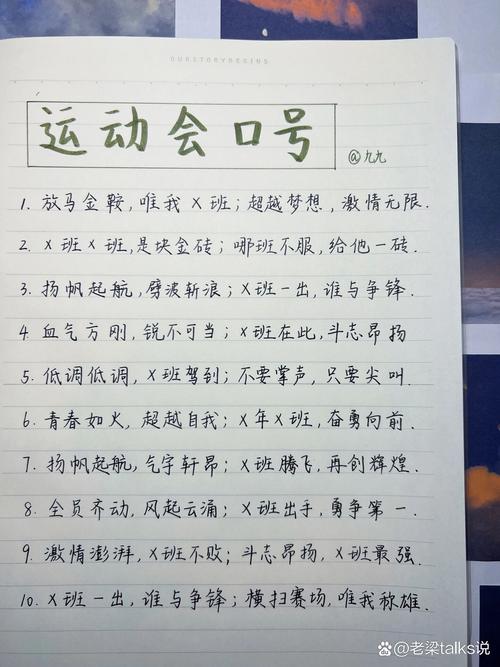 OURSTORYBEGINS
运动会口号
@九九
1. 放马金鞍,唯我X班;超越梦想,激情无限.
2. X班X班,是块金砖;哪班不服,给他一砖.
3. 扬帆起航,劈波斩浪;X班一出,谁与争锋.
4. 血气方刚,锐不可当;X班在此,斗志昂扬
5. 低调低调,X班驾到;不要掌声,只要尖叫.
6. 青春如火,超越自我;X年X班,奋勇向前.
7. 扬帆起航,气宇轩昂;X班腾飞,再创辉煌.
8. 全员齐动,风起云涌;X班出手,勇争第一.
9. 激情澎湃,X班不败;斗志昂扬,X班最强.
10. X班一出,谁与争锋;横扫赛场,唯我称雄.
老梁talks说